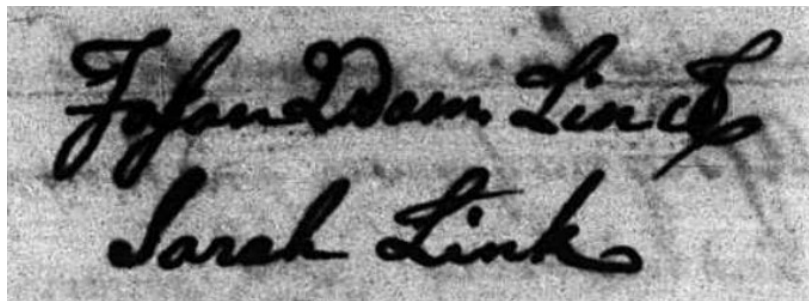 Johan Adam Linck
Sarah Link